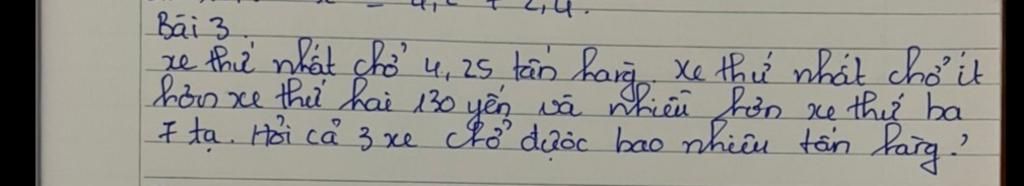 = 4,2 + 2,4.
Bài 3.
xe thứ nhất chở 4,25 tấn hàng. Xe thứ nhất chở ít
hơn xe thứ hai 130 yến và nhiều hơn xe thứ ba
7 tạ. Hỏi cả 3 xe chở được bao nhiêu tấn hàng?